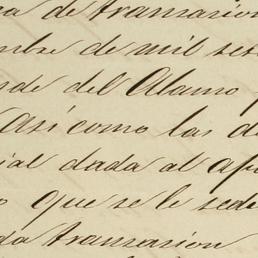 ca de transacion
mbre de mil set
nde del Alamo
Así como las d
ial dada al apo
o que se le sede
da transacion